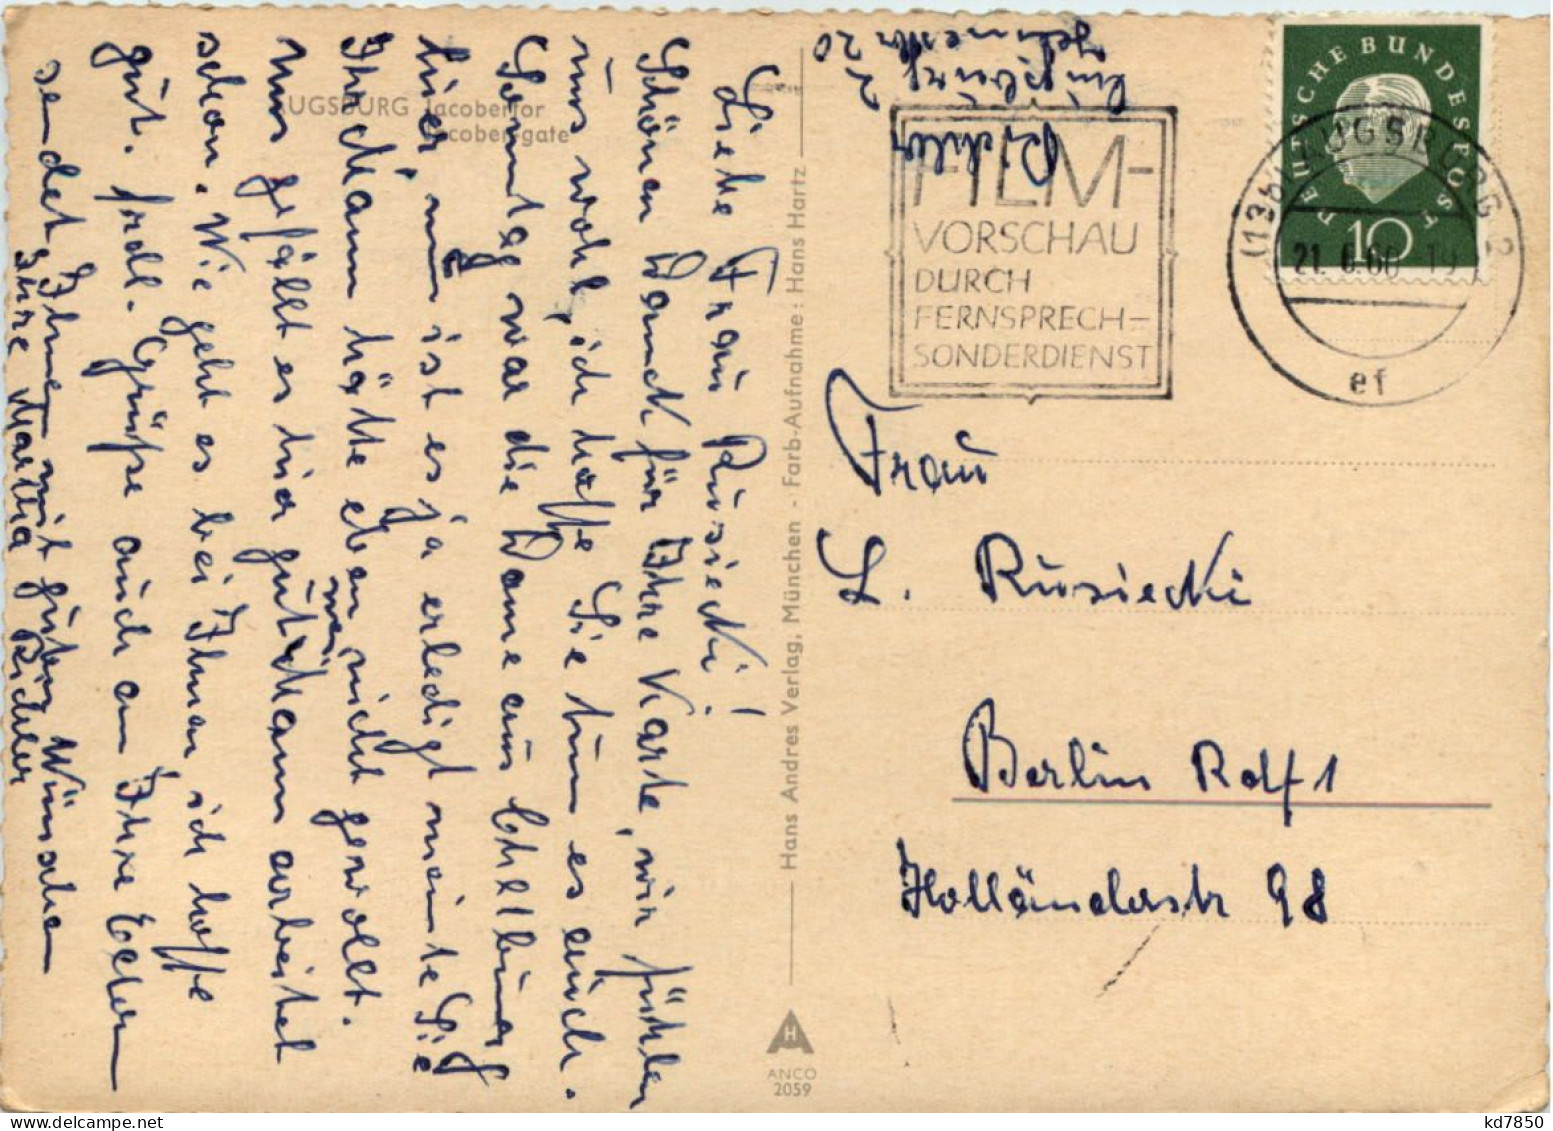 AUGSBURG Jacobertor
Jacober-gate
Liebe Frau Rusiecki!
Schönen Dank für Ihre Karte, wir fühlen
uns wohl, ich hoffe Sie tun es auch.
Sonntag war die Dame aus
hier, nun ist es ja erledigt meinte Sie
Ihr Mann hätte eben nicht gewollt.
Uns gefällt es hier gut, Mann arbeitet
schon. Wie geht es bei Ihnen, ich hoffe
gut. frdl. Grüße auch an Ihre Eltern
sendet Ihnen mit guten Wünschen
Ihre Marita Bichler
Hans Andres Verlag, München · Farb-Aufnahme: Hans Hartz
ANCO
2059
Bichler
Augsburg
20
FILM-
VORSCHAU
DURCH
FERNSPRECH-
SONDERDIENST
DEUTSCHE BUNDESPOST
10
(13b) AUGSBURG 2
21. 6. 60
ef
Frau
L. Rusiecki
Berlin Rdf 1
Holländerstr 98
kd7850